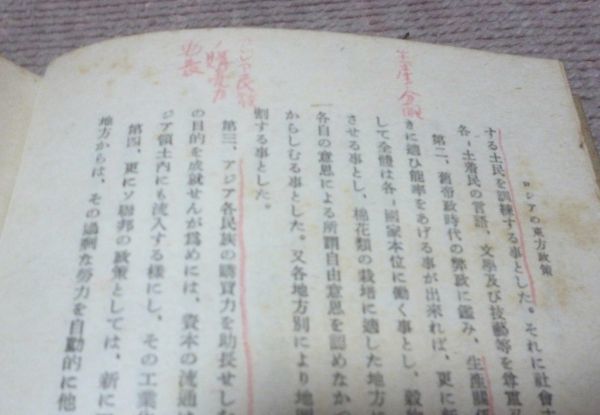 ロシアの東方政策
する土民を訓練する事とした。それに社會
各〻土着民の言語、文學及び技藝等を尊重
第二、舊帝政時代の弊政に鑑み、生產
きに適ひ能率をあげる事が出來れば、更に
して全體は各〻國家本位に働く事とし、穀
させる事とし、棉花類の栽培に適した地方に
各自の意思による所謂自由意思を認めなか
からしむる事とした。又各地方別により
割する事とした。
第三、アジア各民族の購買力を助長せした
の目的を成就せんが爲めには、資本の流通
ジア領土內にも流入する樣にし、その工業
第四、更にソ聯邦の政策としては、新に
地方からは、その過剩な勞力を自動的に他
生産分
民族
購買力
助長